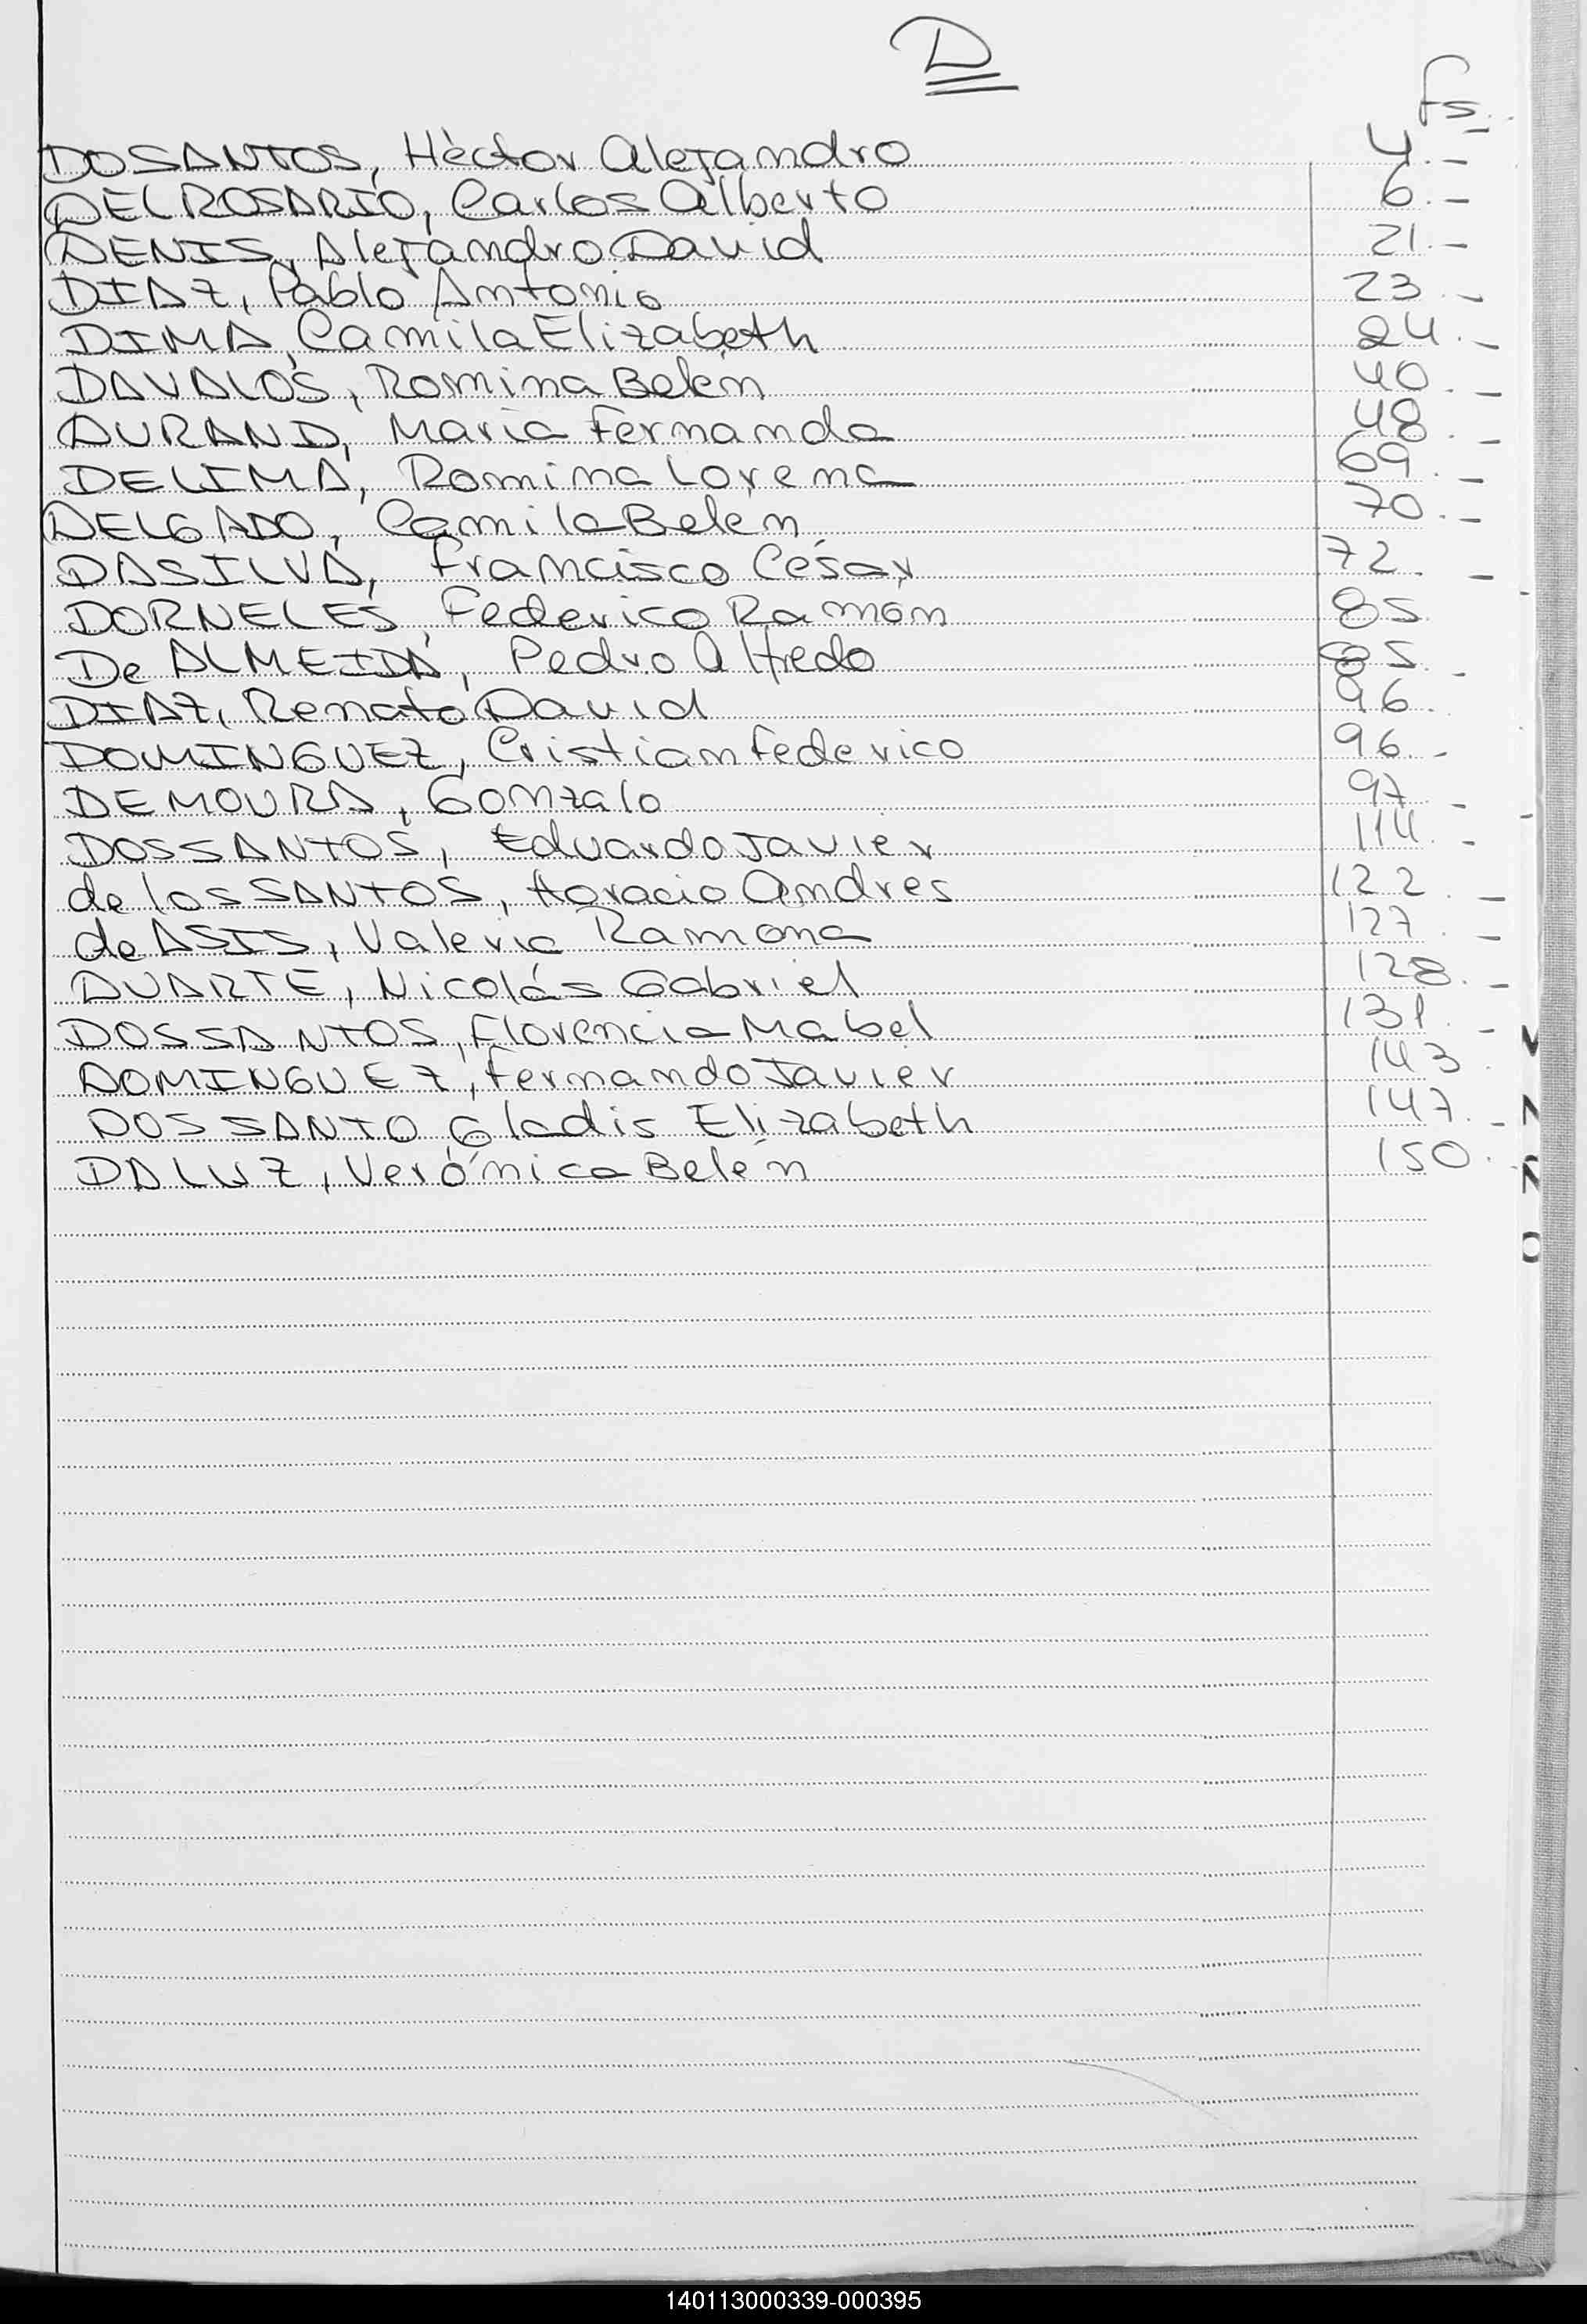 D
Fs.
DOSANTOS, Héctor Alejandro 4.-
DELROSARIO, Carlos Alberto 6.-
DENIS, Alejandro David 21.-
DIAZ, Pablo Antonio 23.-
DIMA, Camila Elizabeth 24.-
DAVALOS, Romina Belén 40.-
DURAND, Maria Fernanda 48.-
DELIMA, Romina Lorena 69.-
DELGADO, Camila Belén 70.-
DASILVA, Francisco César 72.-
DORNELES, Federico Ramón 85
De ALMEIDA, Pedro Alfredo 85.-
DIAZ, Renato David 96.
DOMINGUEZ, Cristian Federico 96.-
DEMOURA, Gonzalo 97.-
DOSSANTOS, Eduardo Javier 114.-
de los SANTOS, Horacio Andres 122.-
de ASIS, Valeria Ramona 127.-
DUARTE, Nicolás Gabriel 128.-
DOSSANTOS, Florencia Mabel 131.-
DOMINGUEZ, Fernando Javier 143.
DOSSANTO Gladis Elizabeth 147.-
DALUZ, Verónica Belén 150.-
N
Ñ
O
140113000339-000395